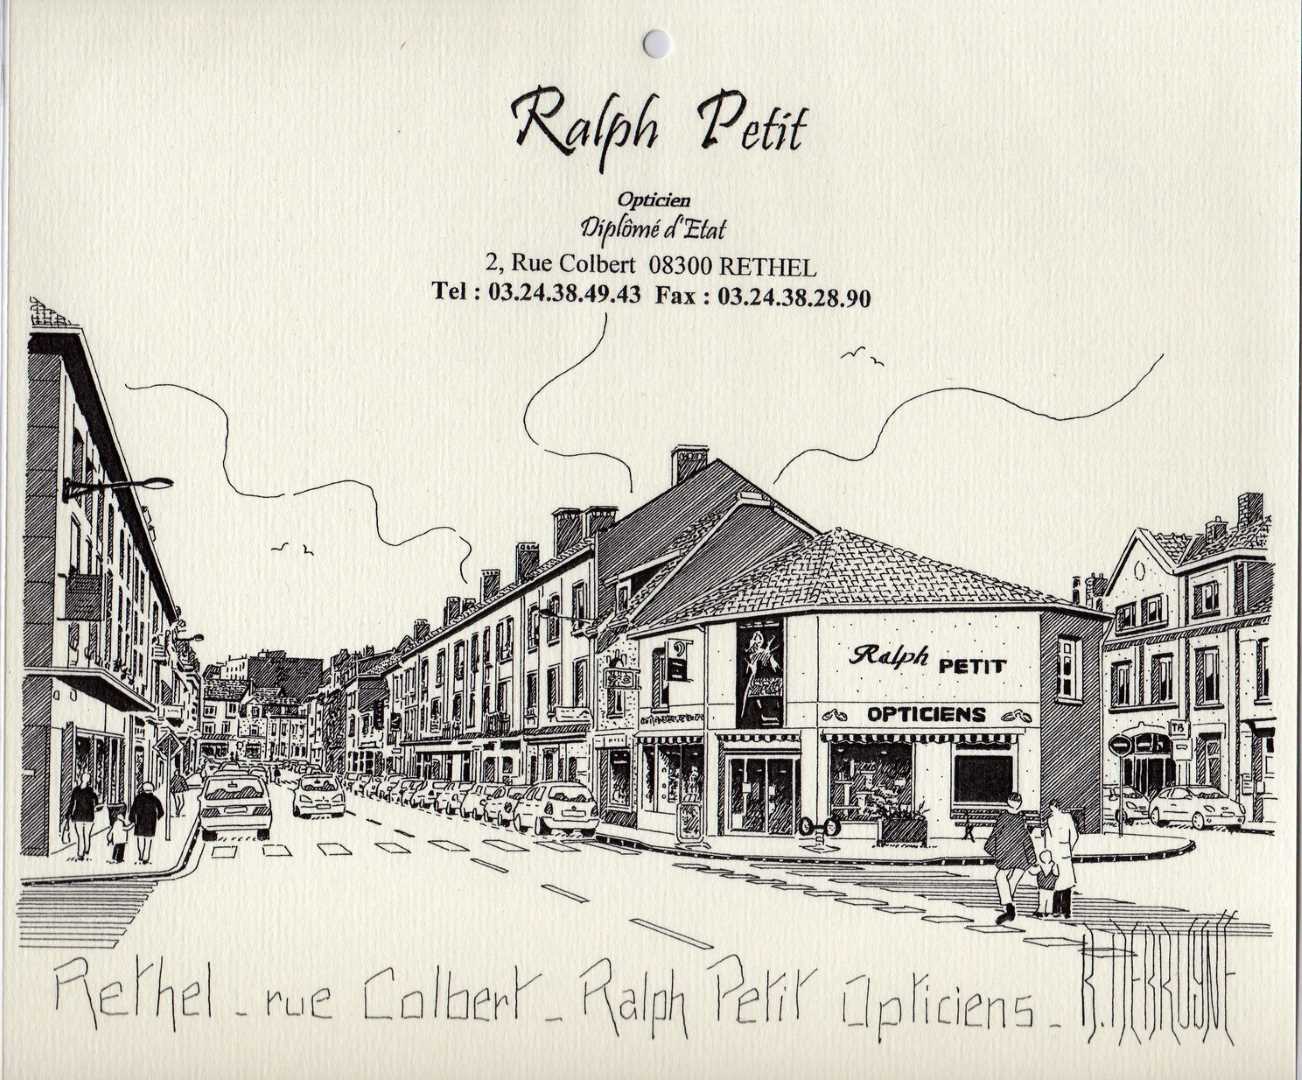 Ralph Petit
Opticien
Diplômé d'Etat
2, Rue Colbert 08300 RETHEL
Tel : 03.24.38.49.43 Fax : 03.24.38.28.90
Ralph PETIT
OPTICIENS
Rethel - rue Colbert - Ralph Petit Opticiens -